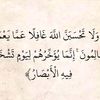 وَلَا تَحْسَبَنَّ اللَّهَ غَافِلًا عَمَّا يَعْمَلُ
الظَّالِمُونَ ۚ إِنَّمَا يُؤَخِّرُهُمْ لِيَوْمٍ تَشْخَصُ
فِيهِ الْأَبْصَارُ